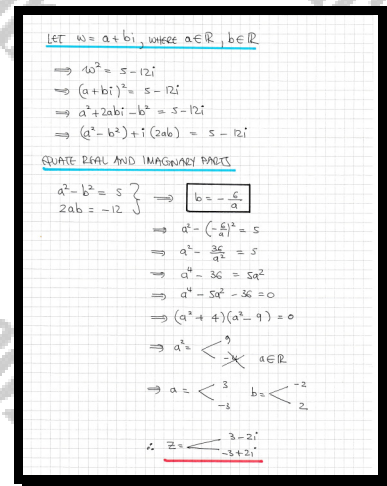 LET w = a + bi, WHERE a ∈ ℝ, b ∈ ℝ
⟹ w² = 5 - 12i
⟹ (a + bi)² = 5 - 12i
⟹ a² + 2abi - b² = 5 - 12i
⟹ (a² - b²) + i(2ab) = 5 - 12i
EQUATE REAL AND IMAGINARY PARTS
a² - b² = 5
2ab = -12 } ⟹ b = -6/a
⟹ a² - (-6/a)² = 5
⟹ a² - 36/a² = 5
⟹ a⁴ - 36 = 5a²
⟹ a⁴ - 5a² - 36 = 0
⟹ (a² + 4)(a² - 9) = 0
⟹ a² = < 9
-4 a ∈ ℝ
⟹ a = < 3 -3 b = < -2 2
∴ z = < 3 - 2i
-3 + 2i